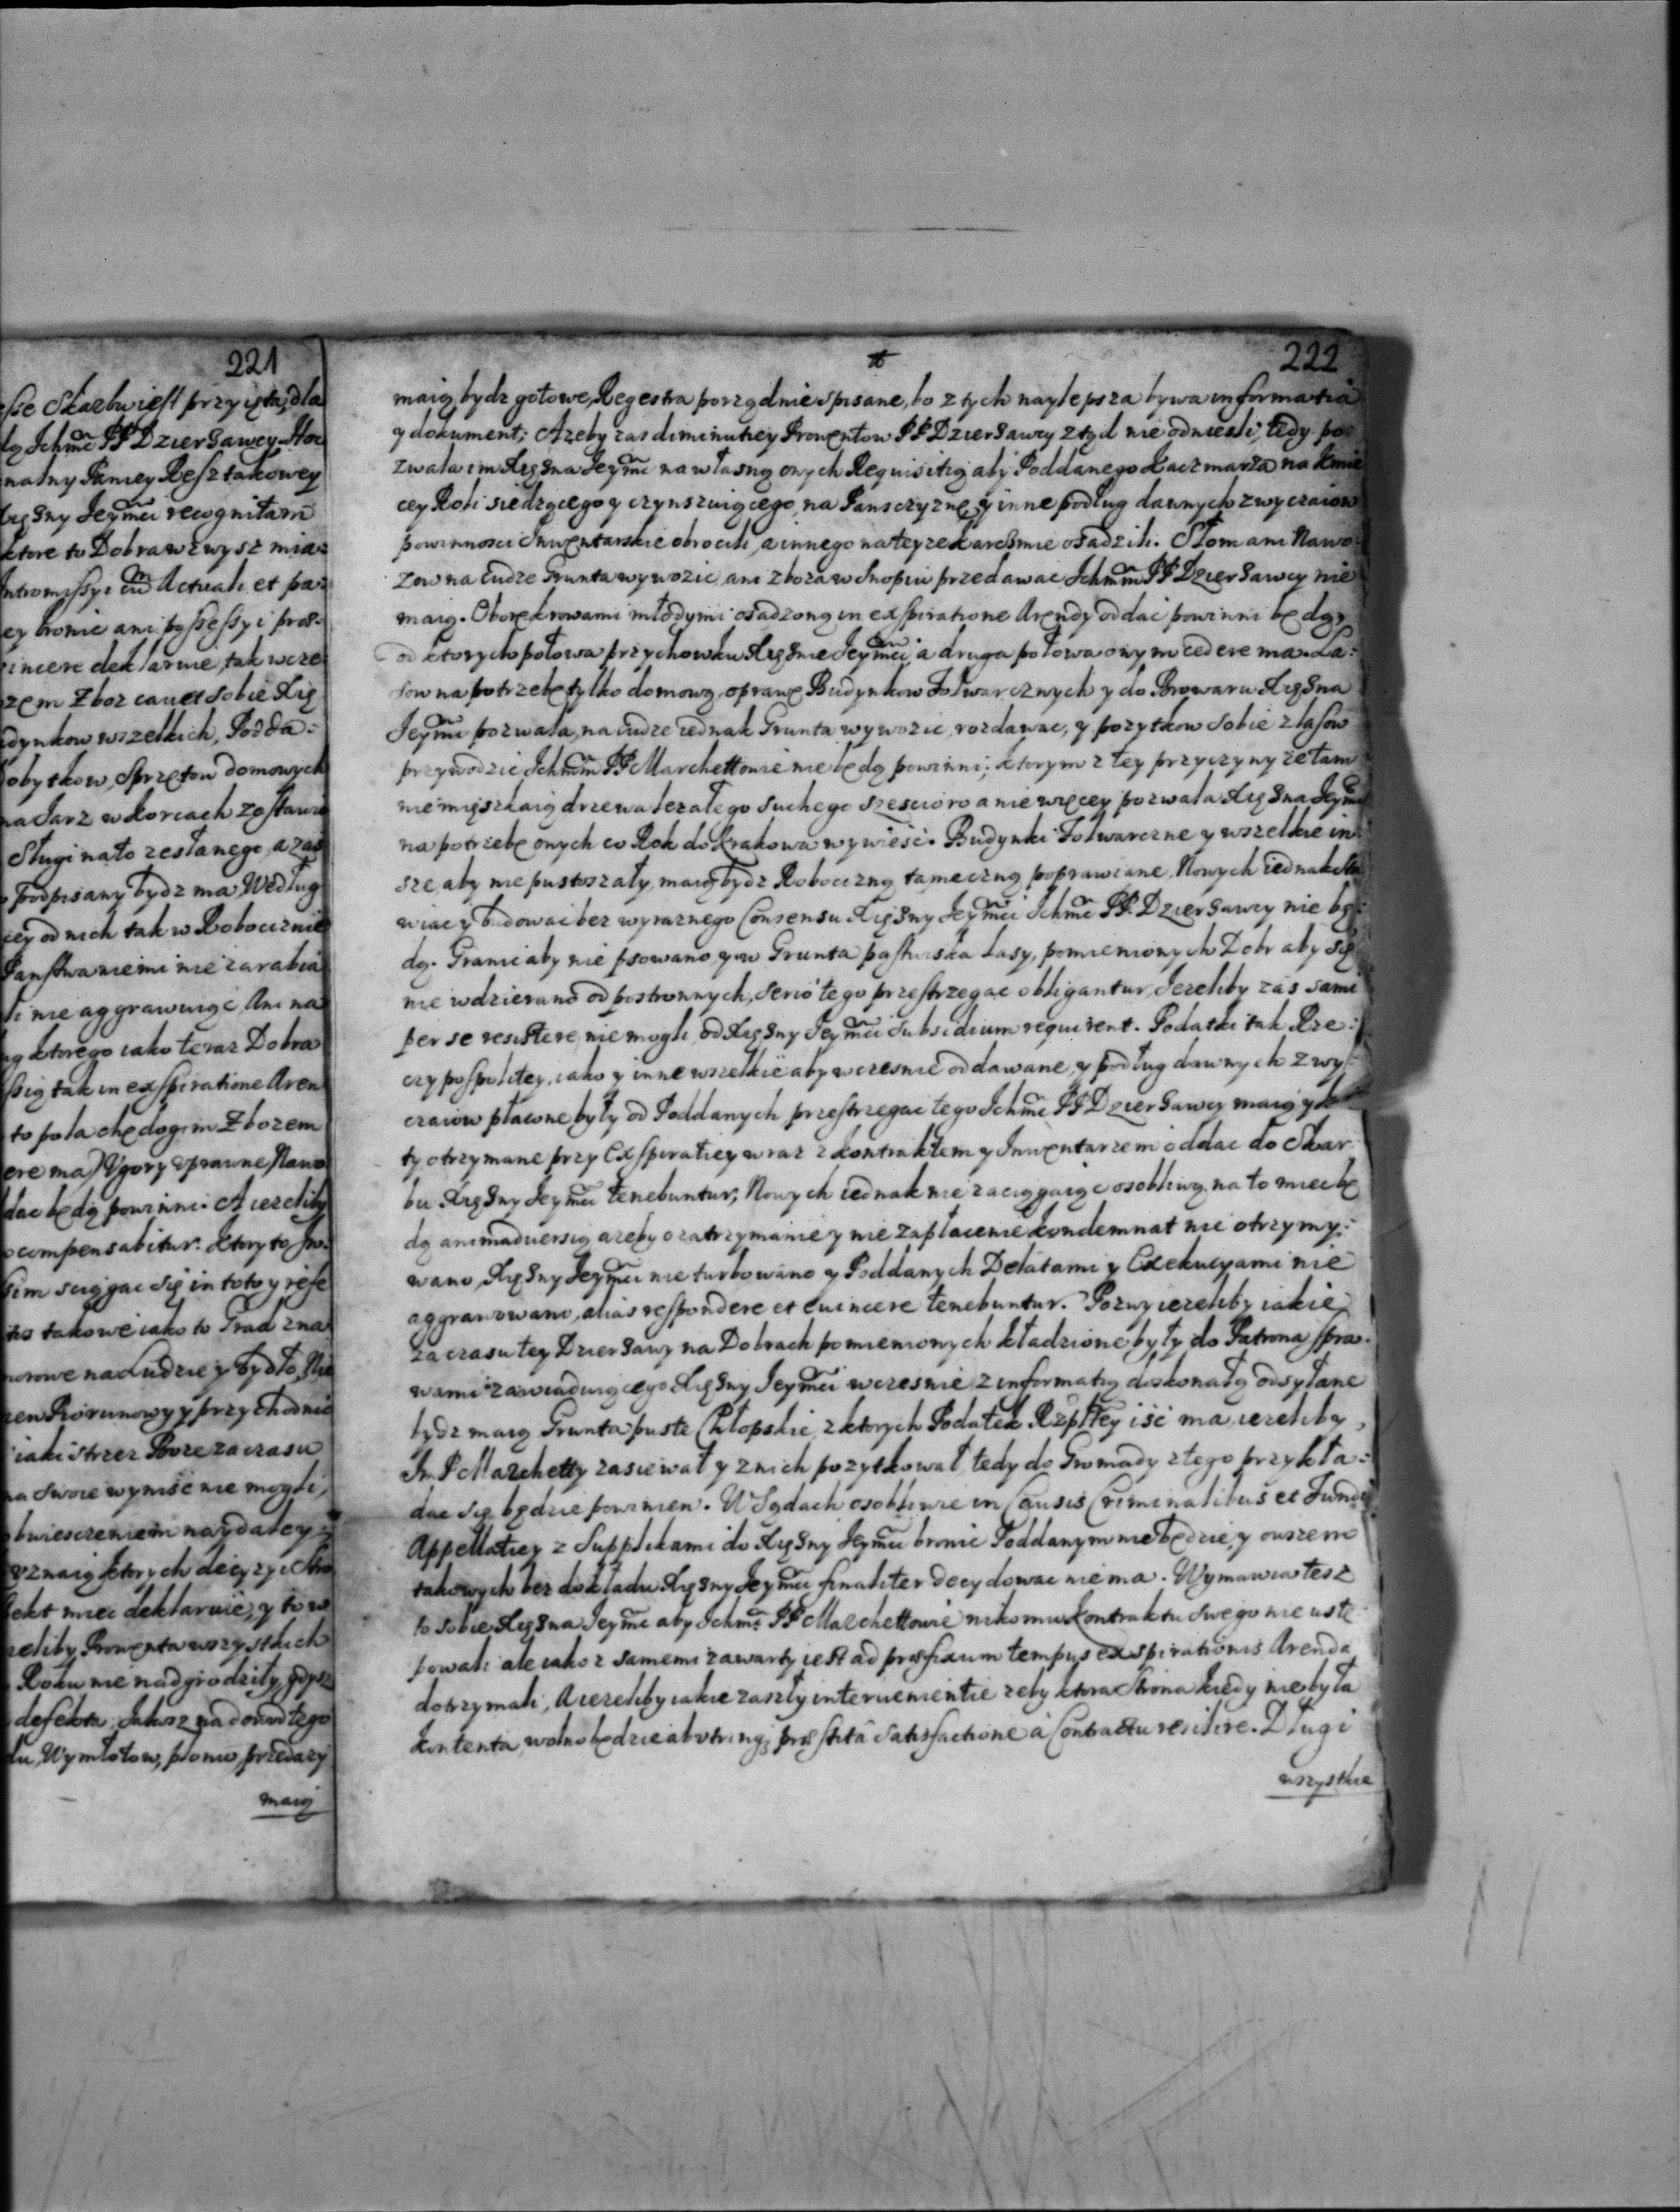 221
sse Skarbu iest przyięta, dla
Ichmć PP Dzierżawcy
nalny Paniey Resztakowey
Xiężny Jeymći recognitam
ktore to Dobra wzwysz mia=
Intromissyi cum Actuali et pa=
ey bronic ani possessyi pros=
incere deklaruie, tak wcze
zem Zboz cauet sobie Xię
dynkow wszelkich, Podda=
obytkow, Sprzętow domowych
na Jarz w korcach zostawi
Sługi na to zesłanego, a zas
podpisany bydz ma, Według
cey od nich tak w Robociznie
Panstwa niemi nie zarabia
li nie aggrawuiąc, Ani na
ktorego iako teraz Dobra
ssią tak in exspiratione Aren
to pola chędogim Zbozem
ere ma) Ugory sprawne Nawo
dac będą powinni. A iezeliby
compensabitur. Ktory to
sim sciągac się in toto y refe
takowe iako to Grad zna
norowe na Ludzie y Bydło, Nie
zen Piorunowy y przychodnie
iaki strzez Boze za czasu
na swoie wyniść nie mogli,
bwieszczeniem naydaley
uznaią ktorych decyzyi
fekt miec deklaruie, y to w
zeliby Prowenta wszystkich
Roku nie nadgrodziły, gdysz
defekta, Jakosz na dowod tego
du, Wymłotow, plonu, przedazy
maią
222
maią bydz gotowe, Regestra porządnie spisane, bo z tych naylepsza bywa informatia
y dokument; Azeby zas diminutiey Prowentow PP Dzierżawcy ztąd nie odniesli, tedy po=
zwala im Xiężna Jeymć na własną onych Requisitią aby Poddanego Kaczmarza na Kmie
cey Roli siedzącego y czynszuiącego, na Pansczyznę, y inne podług dawnych zwyczaiow
powinnosci Inwentarskie obrocili, a innego na teyze Karczmie osadzili. Słom ani Nawo=
zow na cudze Grunta wywozic, ani zboza w Snopiu przedawac Ichmm PP Dzierżawcy nie
maią. Oborę krowami młodymi osadzoną in exspiratione Arendy oddać powinni będą,
od ktorych połowa przychowku Xiężnie Jeymći a druga połowa onym cedere ma. La=
sow na potrzebę tylko domową, oprawę Budynkow Folwarcznych y do Browaru Xiężna
Jeymć pozwala, na cudze iednak Grunta wywozic, rozdawac, y pozytkow sobie z lasow
przywodzic Ichmm PP Marchettowie nie będą powinni; ktorym z tey przyczyny ze tam
nie mięszkaią drzewa lezałego suchego szescioro a nie więcey pozwala Xiężna Jeymć
na potrzebę onych co Rok do Krakowa wywieść. Budynki Folwarczne y wszelkie in=
sze, aby nie pustoszały, maią bydz Robocizną tameczną poprawiane, Nowych iednak sta
wiac y budowac bez wyraznego Consensu Xiężny Jeymći Ichmć PP. Dzierżawcy nie bę=
dą. Granic aby nie psowano, y w Grunta pastwiska Lasy, pomienionych Dobr aby się
nie wdzierano od postronnych, serio tego przestrzegac obligantur, Jezeliby zas sami
per se resistere nie mogli, od Xiężny Jeymći subsidium requirent. Podatki tak Rze=
czypospolitey, iako y inne wszelkie aby wczesnie oddawane, y podług dawnych zwy=
czaiow płacone były od Poddanych przestrzegac tego Ichmć PP Dzierżawcy maią y kwi
ty otrzymane przy Exspiratiey wraz z kontraktem y Inwentarzem oddac do Skar=
bu Xiężny Jeymći tenebuntur; Nowych iednak nie zaciągaiąc osobliwą na to miec bę
dą animadversią azeby o zatrzymanie y nie zapłacenie kondemnat nie otrzymy=
wano, Xiężny Jeymći nie turbowano y Poddanych Delatami y Exekucyami nie
aggrawowano, alias respondere et evincere tenebuntur. Pozwy iezeliby iakie
za czasu tey Dzierżawy na Dobrach pomienionych kładzione były do Patrona spra=
wami zawiaduiącego Xiężny Jeymći wczesnie z informatią doskonałą odsyłane
bydz maią Grunta puste Chłopskie, z ktorych Podatek Rzpltey iść ma iezeliby,
Im P Marchetty zasiewał y z nich pozytkował, tedy do Gromady z tego przykła=
dac się będzie powinien. W Sądach osobliwie in Causis Criminalibus et Fundi
Appellatiey z Supplikami do Xiężny Jeymći bronic Poddanym nie będzie, y owszem
takowych bez dokładu Xiężny Jeymći finaliter decydowac nie ma. Wymawia tesz
to sobie Xiężna Jeymć aby Ichmć PP Marchettowie nikomu kontraktu swego nie uste=
powali ale iako z samemi zawarty iest ad præfixum tempus exspirationis Arendą
dotrzymali, A iezeliby iakie zaszły interuenientie zeby ktora Strona kiedy nie była
kontenta, wolno będzie ab utrinq; præstitâ satisfactione à Contractu resilire. Długi
wszystkie